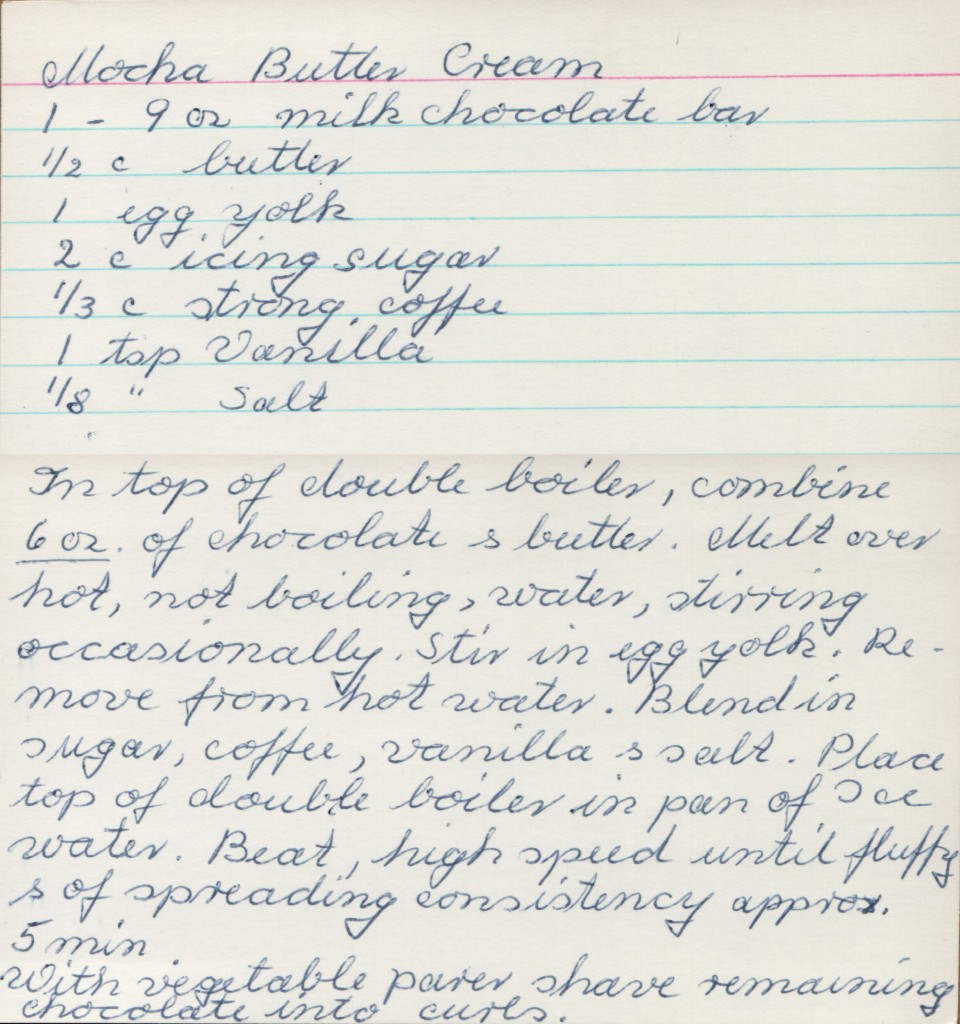 Mocha Butter Cream
1 - 9 oz milk chocolate bar
1/2 c butter
1 egg yolk
2 c icing sugar
1/3 c strong coffee
1 tsp Vanilla
1/8 " Salt
In top of double boiler, combine
6 oz. of chocolate & butter. Melt over
hot, not boiling, water, stirring
occasionally. Stir in egg yolk. Re-
move from hot water. Blend in
sugar, coffee, vanilla & salt. Place
top of double boiler in pan of Ice
water. Beat, high speed until fluffy
& of spreading consistency approx.
5 min
With vegetable parer shave remaining
chocolate into curls.